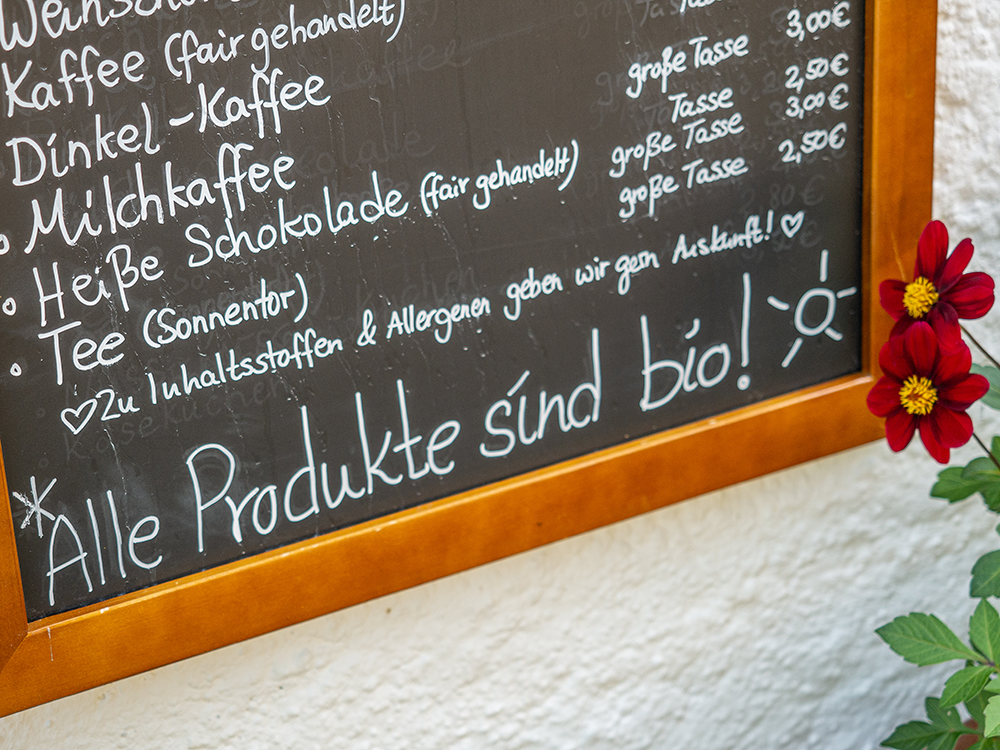 Kaffee (fair gehandelt) Tasse
Dinkel-Kaffee große Tasse 3,00€
Milchkaffee Tasse 2,50€
Heiße Schokolade (fair gehandelt) große Tasse 3,00€
Tee (Sonnentor) große Tasse 2,50€
♡ Zu Inhaltsstoffen & Allergenen geben wir gern Auskunft! ♡
* Alle Produkte sind bio!